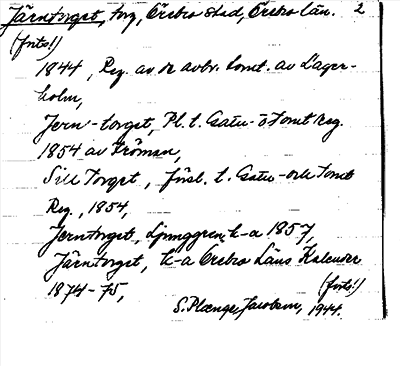 Järntorget, torg, Örebro stad, Örebro län. 2
(forts!)
1844, Reg. av de avbr. tomt. av Lager-
holm,
Jern-torget, Pl. t. Gatu- o Tomt reg.
1854 av Kröman,
Sill Torget, försl. t. Gatu- och Tomt
Reg., 1854,
Jerntorget, Ljunggren k-a 1857,
Järntorget, k-a Örebro Läns Kalender
1874-75,
(forts!)
S. Plænge Jacobson, 1944.